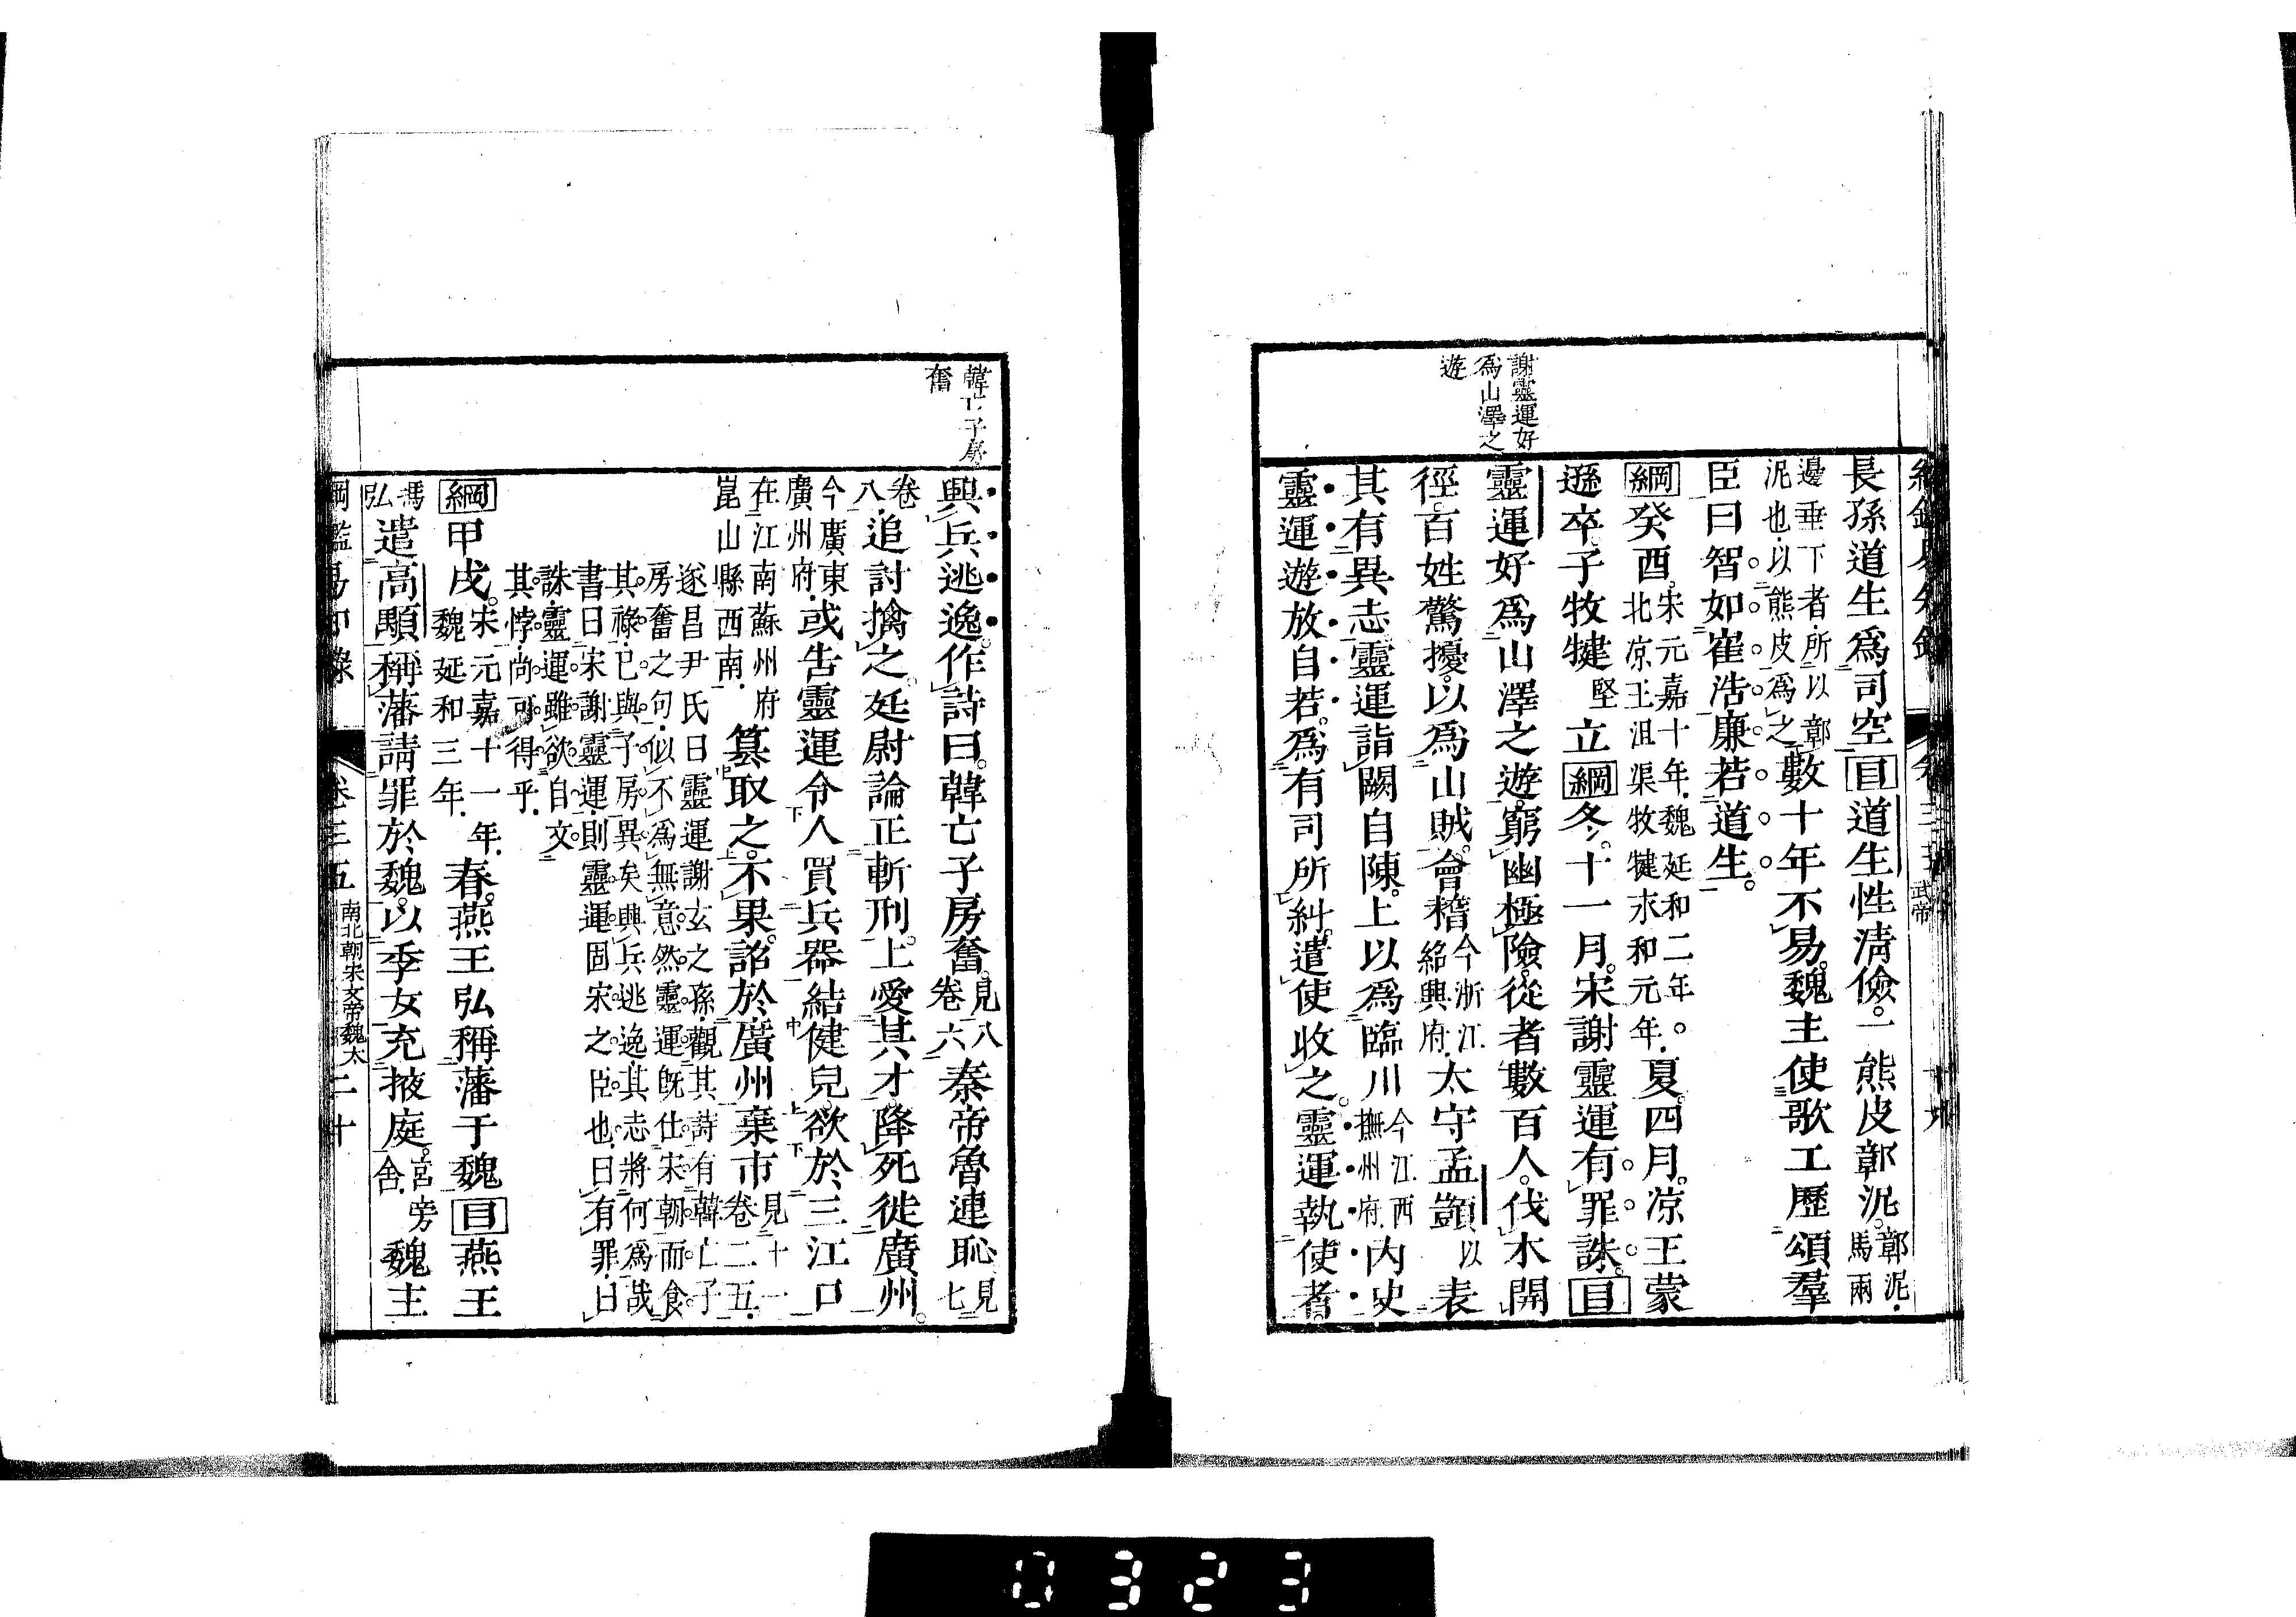 謝靈運好
為山澤之
遊
長孫道生爲司空目道生性淸儉一熊皮鄣泥鄣泥馬兩
邊垂下者所以鄣泥也以熊皮爲之數十年不易魏主使歌工歷頌羣
臣曰智如崔浩廉若道生
綱癸酉宋元嘉十年魏延和二年北凉王沮渠牧犍永和元年夏四月凉王蒙
遜卒子牧犍堅立綱冬十一月宋謝靈運有罪誅目
靈運好爲山澤之遊窮幽極險從者數百人伐木開
徑百姓驚擾以爲山賊會稽今浙江紹興府太守孟顗以表
其有異志靈運詣闕自陳上以爲臨川今江西撫州府內史
靈運遊放自若爲有司所糾遣使收之靈運執使者
韓亡子房
奮
興兵逃逸作詩曰韓亡子房奮見八卷六秦帝魯連恥見七
卷八追討擒之廷尉論正斬刑上愛其才降死徙廣州
今廣東廣州府或告靈運令人買兵器結健兒欲於三江口
在江南蘇州府崑山縣西南簒取之不果詔於廣州棄市見十一卷二五
遂昌尹氏曰靈運謝玄之孫觀其詩有韓亡子
房奮之句似不爲無意然靈運旣仕宋朝而食
其祿已與子房異矣興兵逃逸其志將何爲哉
書曰宋謝靈運則靈運固宋之臣也曰有罪曰
誅靈運雖欲自文
其悖尚可得乎
綱甲戌宋元嘉十一年魏延和三年春燕王弘稱藩于魏目燕王
馮弘遣高顒稱藩請罪於魏以季女充掖庭宮旁舍魏主
綱鑑易知錄 卷三五 南北朝宋文帝魏太 二十